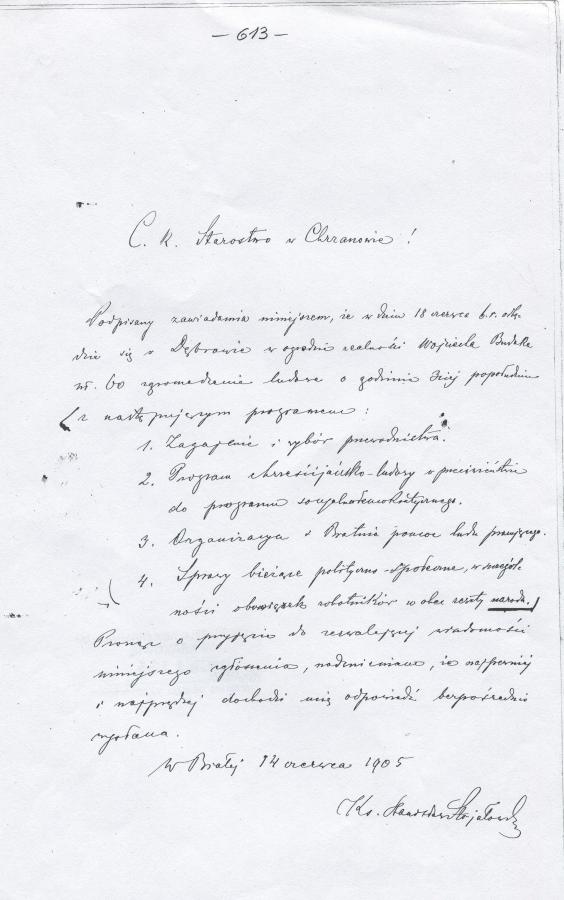 – 613 –
C. K. Starostwo w Chrzanowie!
Podpisany zawiadamia niniejszem, że w dniu 18 czerwca b.r. odbę-
dzie się w Dąbrowie w ogrodzie realności Wojciecha Budaka
nr. 60 zgromadzenie ludowe o godzinie 3ciej popołudniu
z następującym programem:
1. Zagajenie i wybór przewodnictwa.
2. Program chrześcijańsko-ludowy w przeciwieństwie
do programu socyalnodemokratycznego.
3. Organizacya i Bratnia pomoc ludu pracującego.
4. Sprawy bieżące polityczno-społeczne, w szczegól-
ności obowiązek robotników wobec reszty narodu.
Prosząc o przyjęcie do zezwalającej wiadomości
niniejszego zgłoszenia, nadmieniam, że najpewniej
i najprędzej dochodzi mię odpowiedź bezpośrednio
wysłana.
W Białej 14 czerwca 1905
Ks. Stanisław Stojałowski